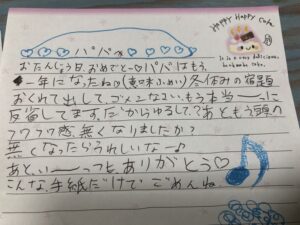 Happy Happy Cake
It is a very delicious
パパへ
おたんじょう日、おめでとー♡パパはもう
一年になったね
冬休みの宿題
おくれて出して、ゴメンなさい、もう本当ーに
反省してます。だからゆるして?あともう頭の
フワフワ感、無くなりましたか?
無くなったらうれしいなー♪
あと、いーっつも、ありがとう♡
こんな、手紙だけで ごめんね